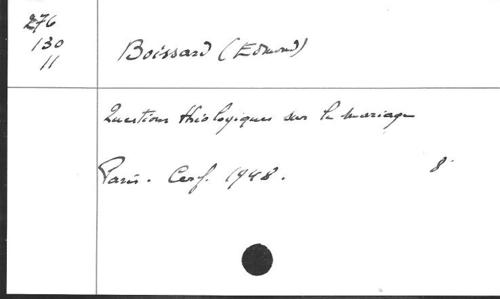 276
130
11
Boissard (Edmond)
Questions théologiques sur le mariage
Paris. Cerf. 1948. 8°